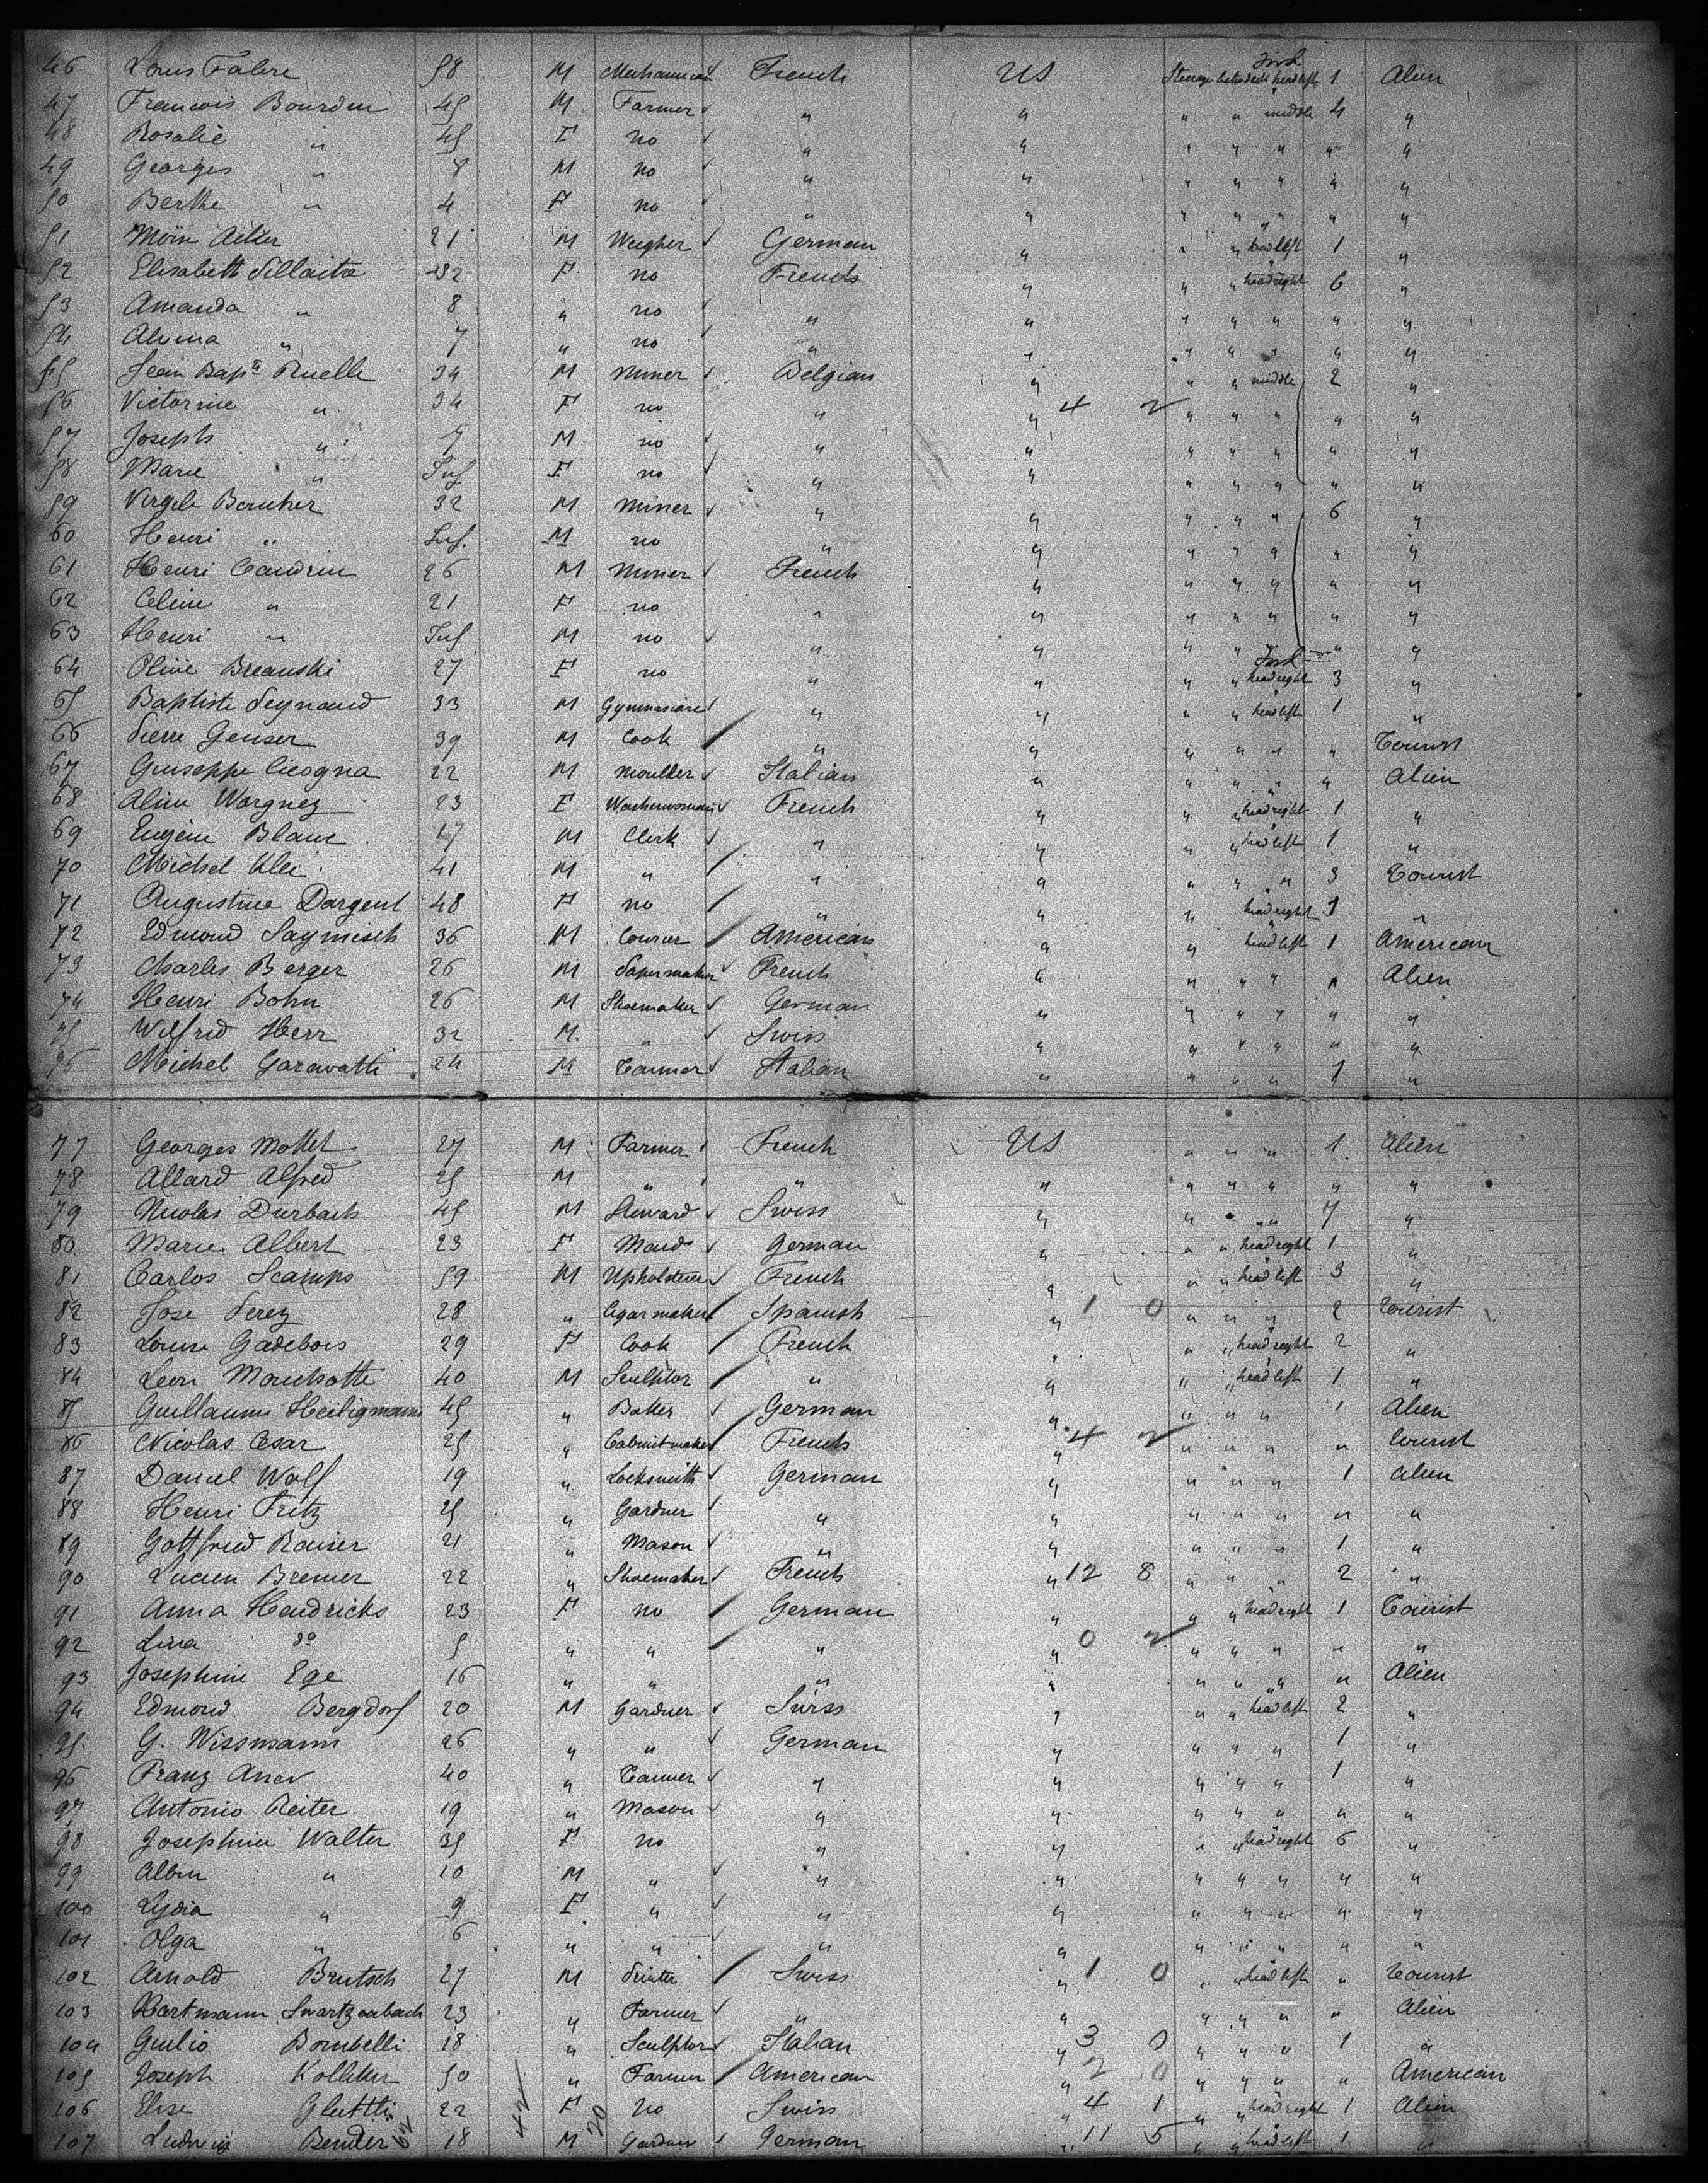 46 Louis Fabre 58 M Mechanician French US Steerage betwdeck Forw headleft 1 Alien
47 Francois Bourdin 45 M Farmer " " " " middle 4 "
48 Rosalie " 45 F no " " " " " " "
49 Georges " 8 M no " " " " " " "
50 Berthe " 4 F no " " " " " " "
51 21 M Weigher German " " " head left 1 "
52 Elisabeth 32 F no French " " " head right 6 "
53 Amanda " 8 " no " " " " " " "
54 Alvina " 7 " no " " " " " " "
55 Jean Bapte Ruelle 34 M Miner Belgian " " " middle 2 "
56 Victorine " 34 F no " " 4 2 " " " " "
57 Joseph " 7 M no " " " " " " "
58 Marie " Inf F no " " " " " " "
59 Virgile 32 M Miner " " " " " 6 "
60 Henri " Inf. M no " " " " " " "
61 Henri Caudrin 26 M Miner French " " " " " "
62 Celine " 21 F no " " " " " " "
63 Henri " Inf M no " " " " " "
64 Olive Breanski 27 F no " " " " Forw head right 3 "
65 Baptiste Peynaud 33 M Gymnasiare " " " " head left 1 "
66 Pierre Genser 39 M Cook " " " " " " Tourist
67 Giuseppe Cicogna 22 M Moulder Italian " " " " " Alien
68 Aline Wargnez 23 F Washerwoman French " " " head right 1 "
69 Eugène Blanc 17 M Clerk " " " " head left 1 "
70 Michel Klei 41 M " " " " " " 3 Tourist
71 Augustine Dargent 48 F no " " " head right 1 "
72 Edmond Saymisch 36 M Courier American " " head left 1 American
73 Charles Berger 26 M Papermaker French " " " " " Alien
74 Henri Bohn 26 M Shoemaker German " " " " " "
75 Wilfrid Herr 32 M. " Swiss " " " " " "
76 Michel Garavatti 24 M Tanner Italian " " " " 1 "
77 Georges Mottet 27 M Farmer French US " " " 1 Alien
78 Allard Alfred 25 M " " " " " " " "
79 Nicolas Durbach 45 M Steward Swiss " " " " 7 "
80 Marie Albert 23 F Maid German " " " head right 1 "
81 Carlos Scamps 59 M Upholsterer French " " " head left 3 "
82 Jose Perez 28 " Cigar maker Spanish " 1 0 " " " 2 Tourist
83 Louise Gadebois 29 F Cook French " " " head right 2 "
84 Leon Manchotte 40 M Sculptor " " " " head left 1 "
85 Guillaume Heiligmann 45 " Baker German " " " " 1 Alien
86 Nicolas Cesar 25 " Cabinet maker French " 4 2 " " " " Tourist
87 Daniel Wolf 19 " Locksmith German " " " " 1 Alien
88 Henri Fritz 25 " Gardner " " " " " " "
89 Gottfried Raiser 21 " Mason " " " " " 1 "
90 Lucien Bremer 22 " Shoemaker French " 12 8 " " " 2 "
91 Anna Hendricks 23 F no German " " " head right 1 Tourist
92 Lina do 5 " " " " 0 2 " " " " "
93 Josephine Ege 16 " " " " " " " " Alien
94 Edmond Bergdorf 20 M Gardner Swiss " " " head left 2 "
95. G. Wissmann 26 " " German " " " " 1 "
96 Franz 40 " Tanner " " " " " 1 "
97 Antonio Reiter 19 " Mason " " " " " " "
98 Josephine Walter 35 F no " " " " head right 6 "
99 Albin " 10 M " " " " " " " "
100 Lydia " 9 F " " " " " " " "
101 Olga " 6 " " " " " " " " "
102 Arnold Brutsch 27 M Printer Swiss " 1 0 " " head left " Tourist
103 Hartmann Swartzenbach 23 " Farmer " " " " " " Alien
104 Giulio Bombelli 18 " Sculptor Italian " 3 0 " " " 1 "
105 Joseph Kolliker 50 " Farmer American " 2 0 " " " " American
106 Elise 22 F no Swiss " 4 1 " " head right 1 Alien
107 Ludwig Bender 18 M Gardner German " 11 5 " " head left 1 "
62 42 20